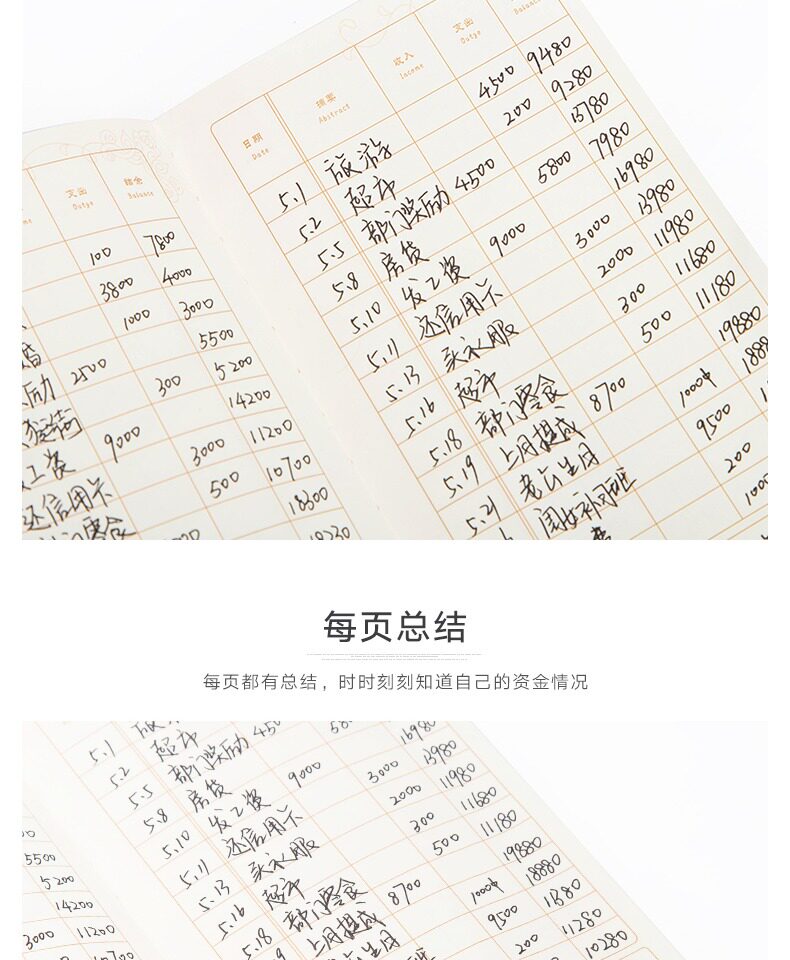 支出 结余
Dutge Balante
100 7800
3800 4000
1000 3000
2500 5500
励 300 5200
9000 14200
工资 3000 11200
还信用卡 500 10700
门零食 18300
日期 摘要 收入 支出
Date Abstract Income Dutge Balante
5.1 旅游 4500 9480
5.2 超市 200 9280
5.5 部门奖励 4500 13780
5.8 房贷 5800 7980
5.10 发工资 9000 16980
5.11 还信用卡 3000 13980
5.13 买衣服 2000 11980
5.16 超市 300 11680
5.18 部门零食 500 11180
5.19 上月提成 8700 19880
5.21 老公生日 1000
闺女补习班 9500
200
每页总结
每页都有总结，时时刻刻知道自己的资金情况
5500
5200
14200
3000 11200
5.1
5.2 超市
5.5 部门奖励
5.8 房贷 16980
5.10 发工资 9000 13980
5.11 还信用卡 3000 11980
5.13 买衣服 2000 11680
5.16 超市 300 11180
5.18 部门零食 500 19880
上月提成 8700 18880
老公生日 1000 11380
9500 11280
200 10280